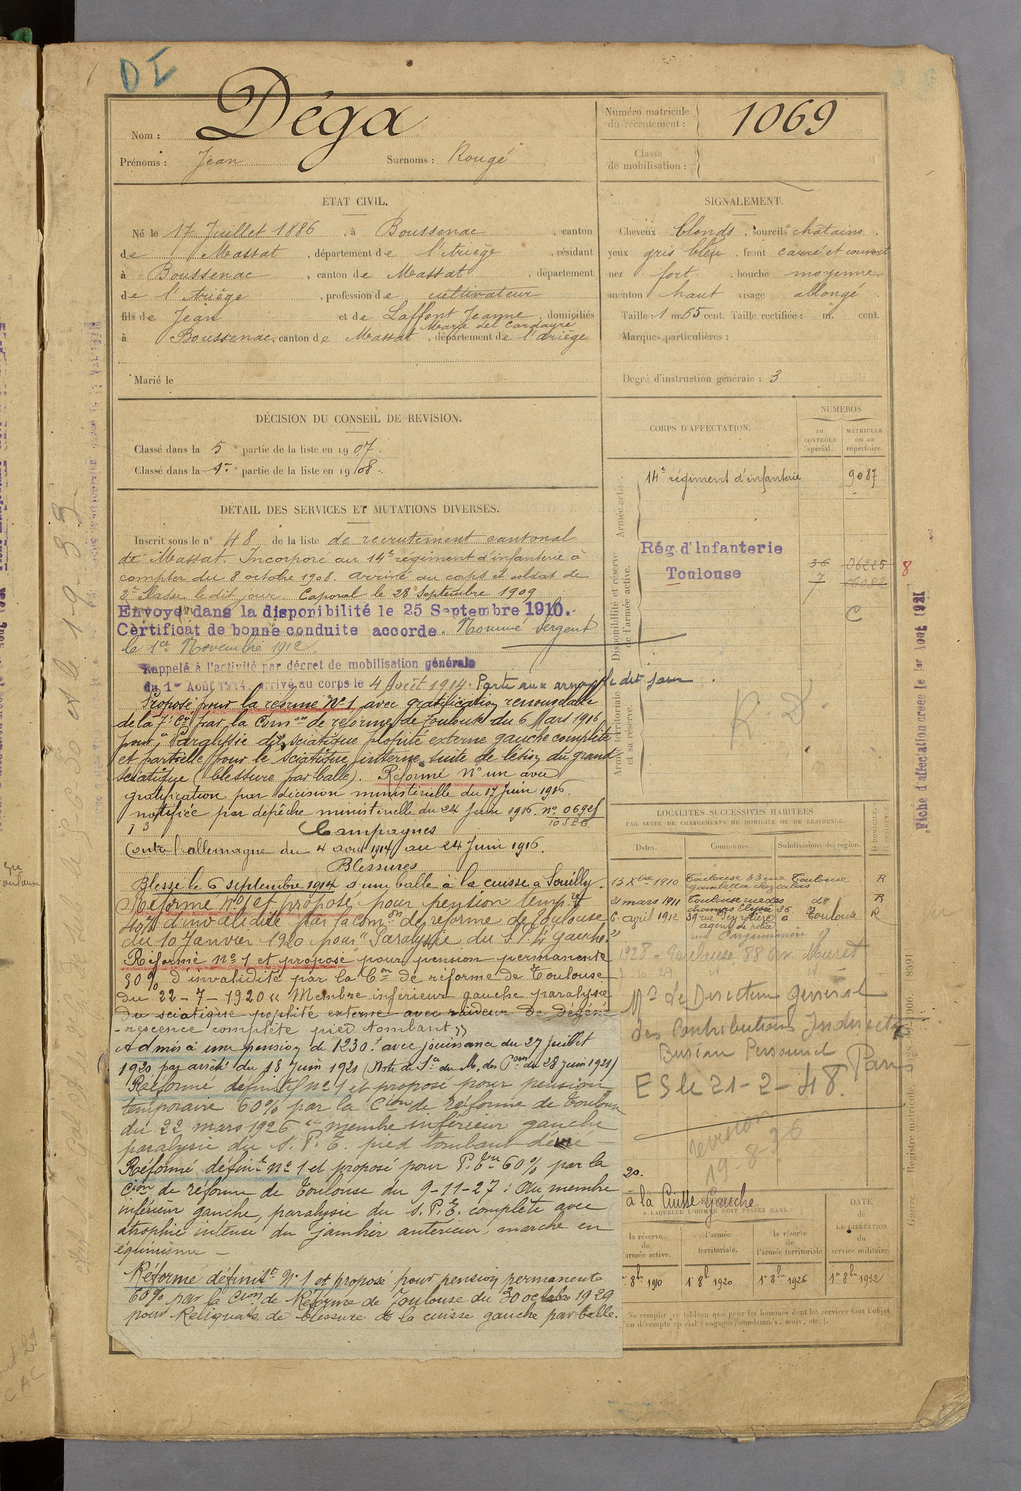 DI
Nom : Déga
Prénoms : Jean Surnoms : Rougé
Numéro matricule
du recrutement : 1069
Classe
de mobilisation :
ETAT CIVIL.
Né le 17 Juillet 1886, à Boussenac, canton
de Massat, département de l'Ariège, résidant
à Boussenac, canton de Massat, département
de l'Ariège, profession de cultivateur
fils de Jean et de Laffont Jeanne, domiciliés
Marie del Cardayre
à Boussenac, canton de Massat, département de l'Ariège
Marié le
SIGNALEMENT.
Cheveux blonds, sourcils châtains.
yeux gris bleu, front carré et couvert
nez fort, bouche moyenne
menton haut visage allongé
Taille : 1 m 65 cent. Taille rectifiée : m. cent.
Marques particulières :
Degré d'instruction générale : 3
DÉCISION DU CONSEIL DE REVISION.
Classé dans la 5e partie de la liste en 1907.
Classé dans la 1re partie de la liste en 1908.
DÉTAIL DES SERVICES ET MUTATIONS DIVERSES.
Inscrit sous le n° 48 de la liste de recrutement cantonal
de Massat. Incorporé au 14e régiment d'infanterie à
compter du 8 octobre 1908. arrivé au corps et soldat de
2e classe le dit jour. Caporal le 28 Septembre 1909
Envoyé dans la disponibilité le 25 Septembre 1910.
Certificat de bonne conduite accordé. Nommé Sergent
le 1er Novembre 1912
Rappelé à l'activité par décret de mobilisation générale
du 1er Août 1914. arrivé au corps le 4 Août 1914. Parti aux armées le dit jour.
Proposé pour la réforme N° 1 avec gratification renouvelable
de la 7e Cie par la Comon de réforme de Toulouse du 6 Mars 1916
pour "Paralysie du sciatique poplité externe gauche complète
et partielle pour le sciatique interne suite de lésion du grand
sciatique (blessure par balle). Réformé N° un avec
gratification par décision ministérielle du 17 Juin 1916.
notifiée par dépêche ministérielle du 24 Juin 1916. n° 06925
Campagnes
Contre l'allemagne du 4 aout 1914 au 24 Juin 1916.
Blessures
Blessé le 6 septembre 1914 d'une balle à la cuisse à Souilly.
Réformé n° 1 et proposé pour pension tempre
40% d'invalidité par la comon de réforme de Toulouse
du 10 Janvier 1920 pour "Paralysie du S.P.E gauche."
Réformé N° 1 et proposé pour pension permanente
50% d'invalidité par la Con de réforme de Toulouse
Du 22-7-1920 "Membre inférieur gauche paralysie
du sciatique poplité externe avec raideur de dégéné-
-rescence complète pied tombant"
Admis à une pension de 1230f avec jouissance du 27 Juillet
1920 par arrêté du 18 Juin 1921 (Note de Sce du M. des Pons du 28 juin 1921)
Réformé définitif n° 1 et proposé pour pension
temporaire 60% par la Cion de Réforme de Toulouse
du 22 mars 1926 "membre inférieur gauche
paralysie du S.P.E. pied tombant
Réformé définit n° 1 et proposé pour P. Tre 60% par la
Cion de réforme de Toulouse du 9-11-27 : Au membre
inférieur gauche, paralysie du S.P.E. complète avec
atrophie intense du jambier antérieur, marche en
équinisme -
Réformé définit. N° 1 et proposé pour pension permanente
60% par la Cion de Réforme de Toulouse du 30 octobre 1929
pour Reliquats de blessure de la cuisse gauche par balle.
CORPS D'AFFECTATION.
NUMÉROS
AU CONTRÔLE spécial.
MATRICULE ou au répertoire.
Armée active.
14e régiment d'infanterie 9087
Disponibilité et réserve de l'armée active.
Rég. d'Infanterie
Toulouse
36 06225 8
7
C
Armée territoriale et sa réserve.
LOCALITÉS SUCCESSIVES HABITÉES
PAR SUITE DE CHANGEMENTS DE DOMICILE OU DE RÉSIDENCE.
Dates. Communes. Subdivisions de région.
13 Xbre 1910 Toulouse 33 rue Toulouse R
gambetta
21 mars 1911 Toulouse rue des do R
6 avril 1912 39 rue Peyrolières à Toulouse R
agent de police
1928 - Toulouse 88 av. Muret
Mr le Directeur général
des Contributions Indirectes
Bureau Personnel Paris
ES le 21-2-48.
revision
19-8-36
à la Cuisse Gauche.
À LAQUELLE L'HOMME DOIT PASSER DANS :
la réserve de l'armée active.
l'armée territoriale.
la réserve de l'armée territoriale
DATE de LA LIBÉRATION du service militaire.
1er 8bre 1910 1er 8bre 1920 1er 8bre 1926 1er 8bre 1932
Fiche d'affectation créée le 1er Août 1921